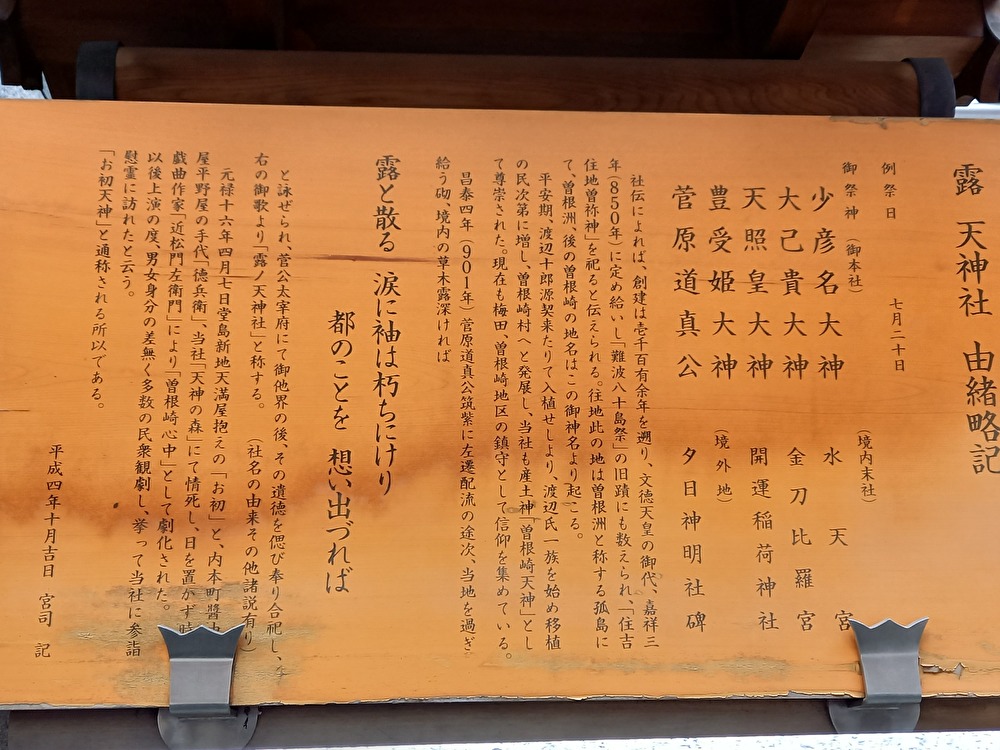 露 天神社 由緒略記
例祭日 七月二十日
御祭神 (御本社)
少彦名大神
大己貴大神
天照皇大神
豊受姫大神
菅原道真公
(境内末社)
水天宮
金刀比羅宮
開運稲荷神社
(境外地)
夕日神明社碑
社伝によれば、創建は壱千百有余年を遡り、文徳天皇の御代、嘉祥三
年(850年)に定め給いし「難波八十島祭」の旧蹟にも数えられ、「住吉
住地曽祢神」を祀ると伝えられる。往地此の地は曽根洲と称する孤島に
て、曽根洲、後の曽根崎の地名はこの御神名より起こる。
平安期、渡辺十郎源契来たりて入植せしより、渡辺氏一族を始め移植
の民次第に増し、曽根崎村へと発展し、当社も産土神「曽根崎天神」とし
て尊崇された。現在も梅田、曽根崎地区の鎮守として信仰を集めている。
昌泰四年(901年)菅原道真公筑紫に左遷配流の途次、当地を過ぎ
給う砌、境内の草木露深ければ
露と散る 涙に袖は朽ちにけり
都のことを 想い出づれば
と詠ぜられ、菅公太宰府にて御他界の後、その遺徳を偲び奉り合祀し、
右の御歌より「露ノ天神社」と称する。 (社名の由来その他諸説有り)
元禄十六年四月七日堂島新地天満屋抱えの「お初」と、内本町醤
屋平野屋の手代「徳兵衛」、当社「天神の森」にて情死し、日を置かず時
戯曲作家「近松門左衛門」により「曽根崎心中」として劇化された。
以後上演の度、男女身分の差無く多数の民衆観劇し、挙って当社に参詣
慰霊に訪れたと云う。
「お初天神」と通称される所以である。
平成四年十月吉日 宮司 記